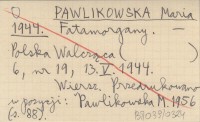 PAWLIKOWSKA Maria
1944. Fatamorgany. –
Polska Walcząca (
6, nr 19, 13.V.1944.
Wiersz. Przedrukowano
w pozycji: Pawlikowska M. 1956
(s. 88).